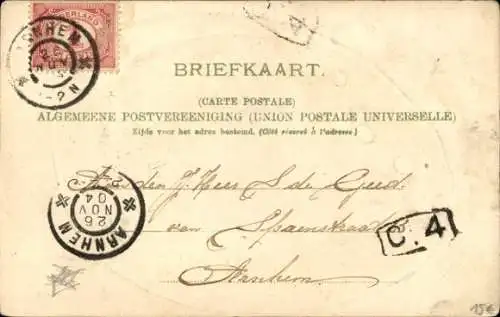 NEDERLAND
ARNHEM
26
NOV
4
BRIEFKAART.
(CARTE POSTALE)
ALGEMEENE POSTVEREENIGING (UNION POSTALE UNIVERSELLE)
Zijde voor het adres bestemd. (Côté réservé à l'adresse.)
Aan den Heer S de Goed.
van Spaenstraat
Arnhem.
ARNHEM
26
NOV
04
C. 4
15€